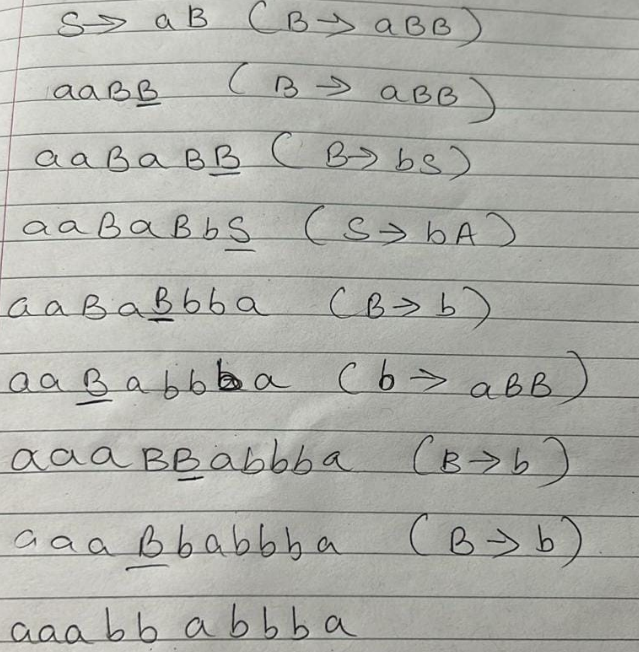 S → aB ( B → aBB )
aaBB ( B → aBB )
aaBaBB ( B → bS )
aaBaBbS ( S → bA )
aaBaBbba ( B → b )
aaBabbba ( b → aBB )
aaaBBabbba ( B → b )
aaaBbabbba ( B → b )
aaabb abbba